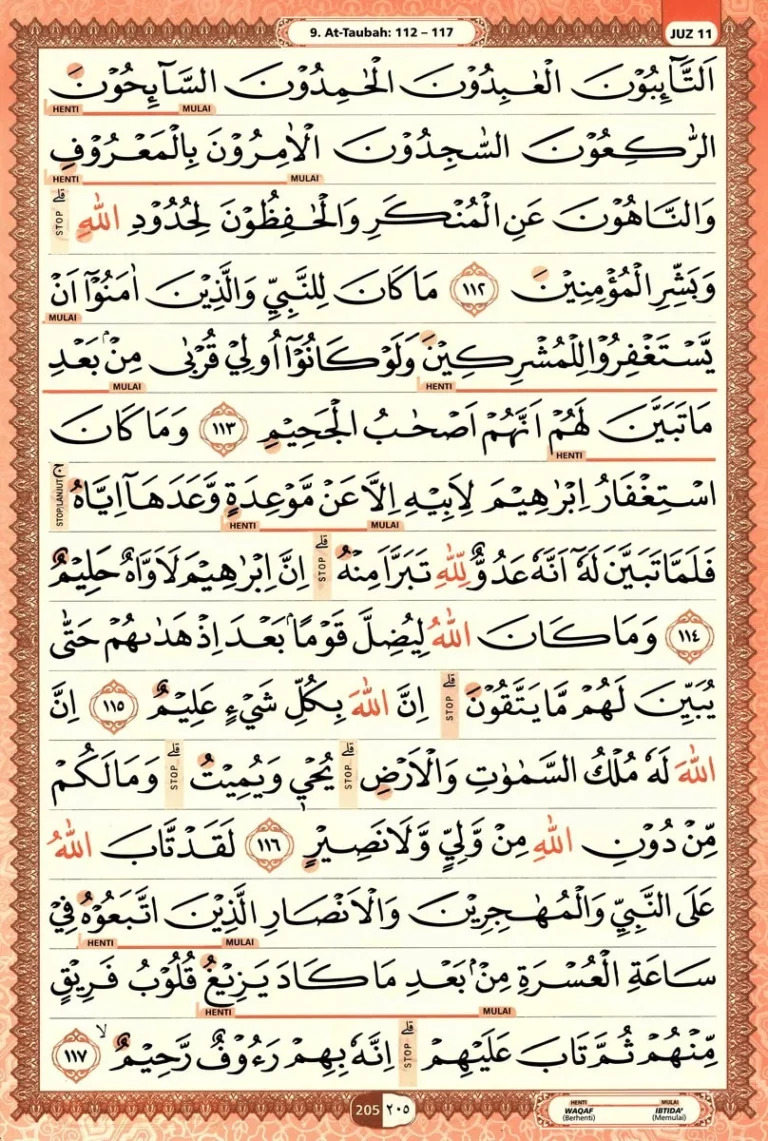 9. At-Taubah: 112 – 117
JUZ 11
اَلتَّاۤىِٕبُوْنَ الْعٰبِدُوْنَ الْحٰمِدُوْنَ السَّاۤىِٕحُوْنَ
HENTI MULAI
الرّٰكِعُوْنَ السّٰجِدُوْنَ الْاٰمِرُوْنَ بِالْمَعْرُوْفِ
HENTI MULAI
وَالنَّاهُوْنَ عَنِ الْمُنْكَرِ وَالْحٰفِظُوْنَ لِحُدُوْدِ اللّٰهِ ۗ STOP
وَبَشِّرِ الْمُؤْمِنِيْنَ ١١٢ مَا كَانَ لِلنَّبِيِّ وَالَّذِيْنَ اٰمَنُوْٓا اَنْ
MULAI
يَّسْتَغْفِرُوْا لِلْمُشْرِكِيْنَ وَلَوْ كَانُوْٓا اُولِيْ قُرْبٰى مِنْۢ بَعْدِ
MULAI HENTI
مَا تَبَيَّنَ لَهُمْ اَنَّهُمْ اَصْحٰبُ الْجَحِيْمِ ١١٣ وَمَا كَانَ
HENTI
اسْتِغْفَارُ اِبْرٰهِيْمَ لِاَبِيْهِ اِلَّا عَنْ مَّوْعِدَةٍ وَّعَدَهَآ اِيَّاهُ ۚ STOP/LANJUT
HENTI MULAI
فَلَمَّا تَبَيَّنَ لَهٗٓ اَنَّهٗ عَدُوٌّ لِّلّٰهِ تَبَرَّاَ مِنْهُ ۗ STOP اِنَّ اِبْرٰهِيْمَ لَاَوَّاهٌ حَلِيْمٌ
١١٤ وَمَا كَانَ اللّٰهُ لِيُضِلَّ قَوْمًاۢ بَعْدَ اِذْ هَدٰىهُمْ حَتّٰى
يُبَيِّنَ لَهُمْ مَّا يَتَّقُوْنَ ۗ STOP اِنَّ اللّٰهَ بِكُلِّ شَيْءٍ عَلِيْمٌ ١١٥ اِنَّ
اللّٰهَ لَهٗ مُلْكُ السَّمٰوٰتِ وَالْاَرْضِ ۗ STOP يُحْيٖ وَيُمِيْتُ ۗ STOP وَمَا لَكُمْ
مِّنْ دُوْنِ اللّٰهِ مِنْ وَّلِيٍّ وَّلَا نَصِيْرٍ ١١٦ لَقَدْ تَّابَ اللّٰهُ
عَلَى النَّبِيِّ وَالْمُهٰجِرِيْنَ وَالْاَنْصَارِ الَّذِيْنَ اتَّبَعُوْهُ فِيْ
HENTI MULAI
سَاعَةِ الْعُسْرَةِ مِنْۢ بَعْدِ مَا كَادَ يَزِيْغُ قُلُوْبُ فَرِيْقٍ
HENTI MULAI
مِّنْهُمْ ثُمَّ تَابَ عَلَيْهِمْ ۗ STOP اِنَّهٗ بِهِمْ رَءُوْفٌ رَّحِيْمٌ ۙ ١١٧
205 ٢٠٥
HENTI MULAI
WAQAF IBTIDA'
(Berhenti) (Memulai)